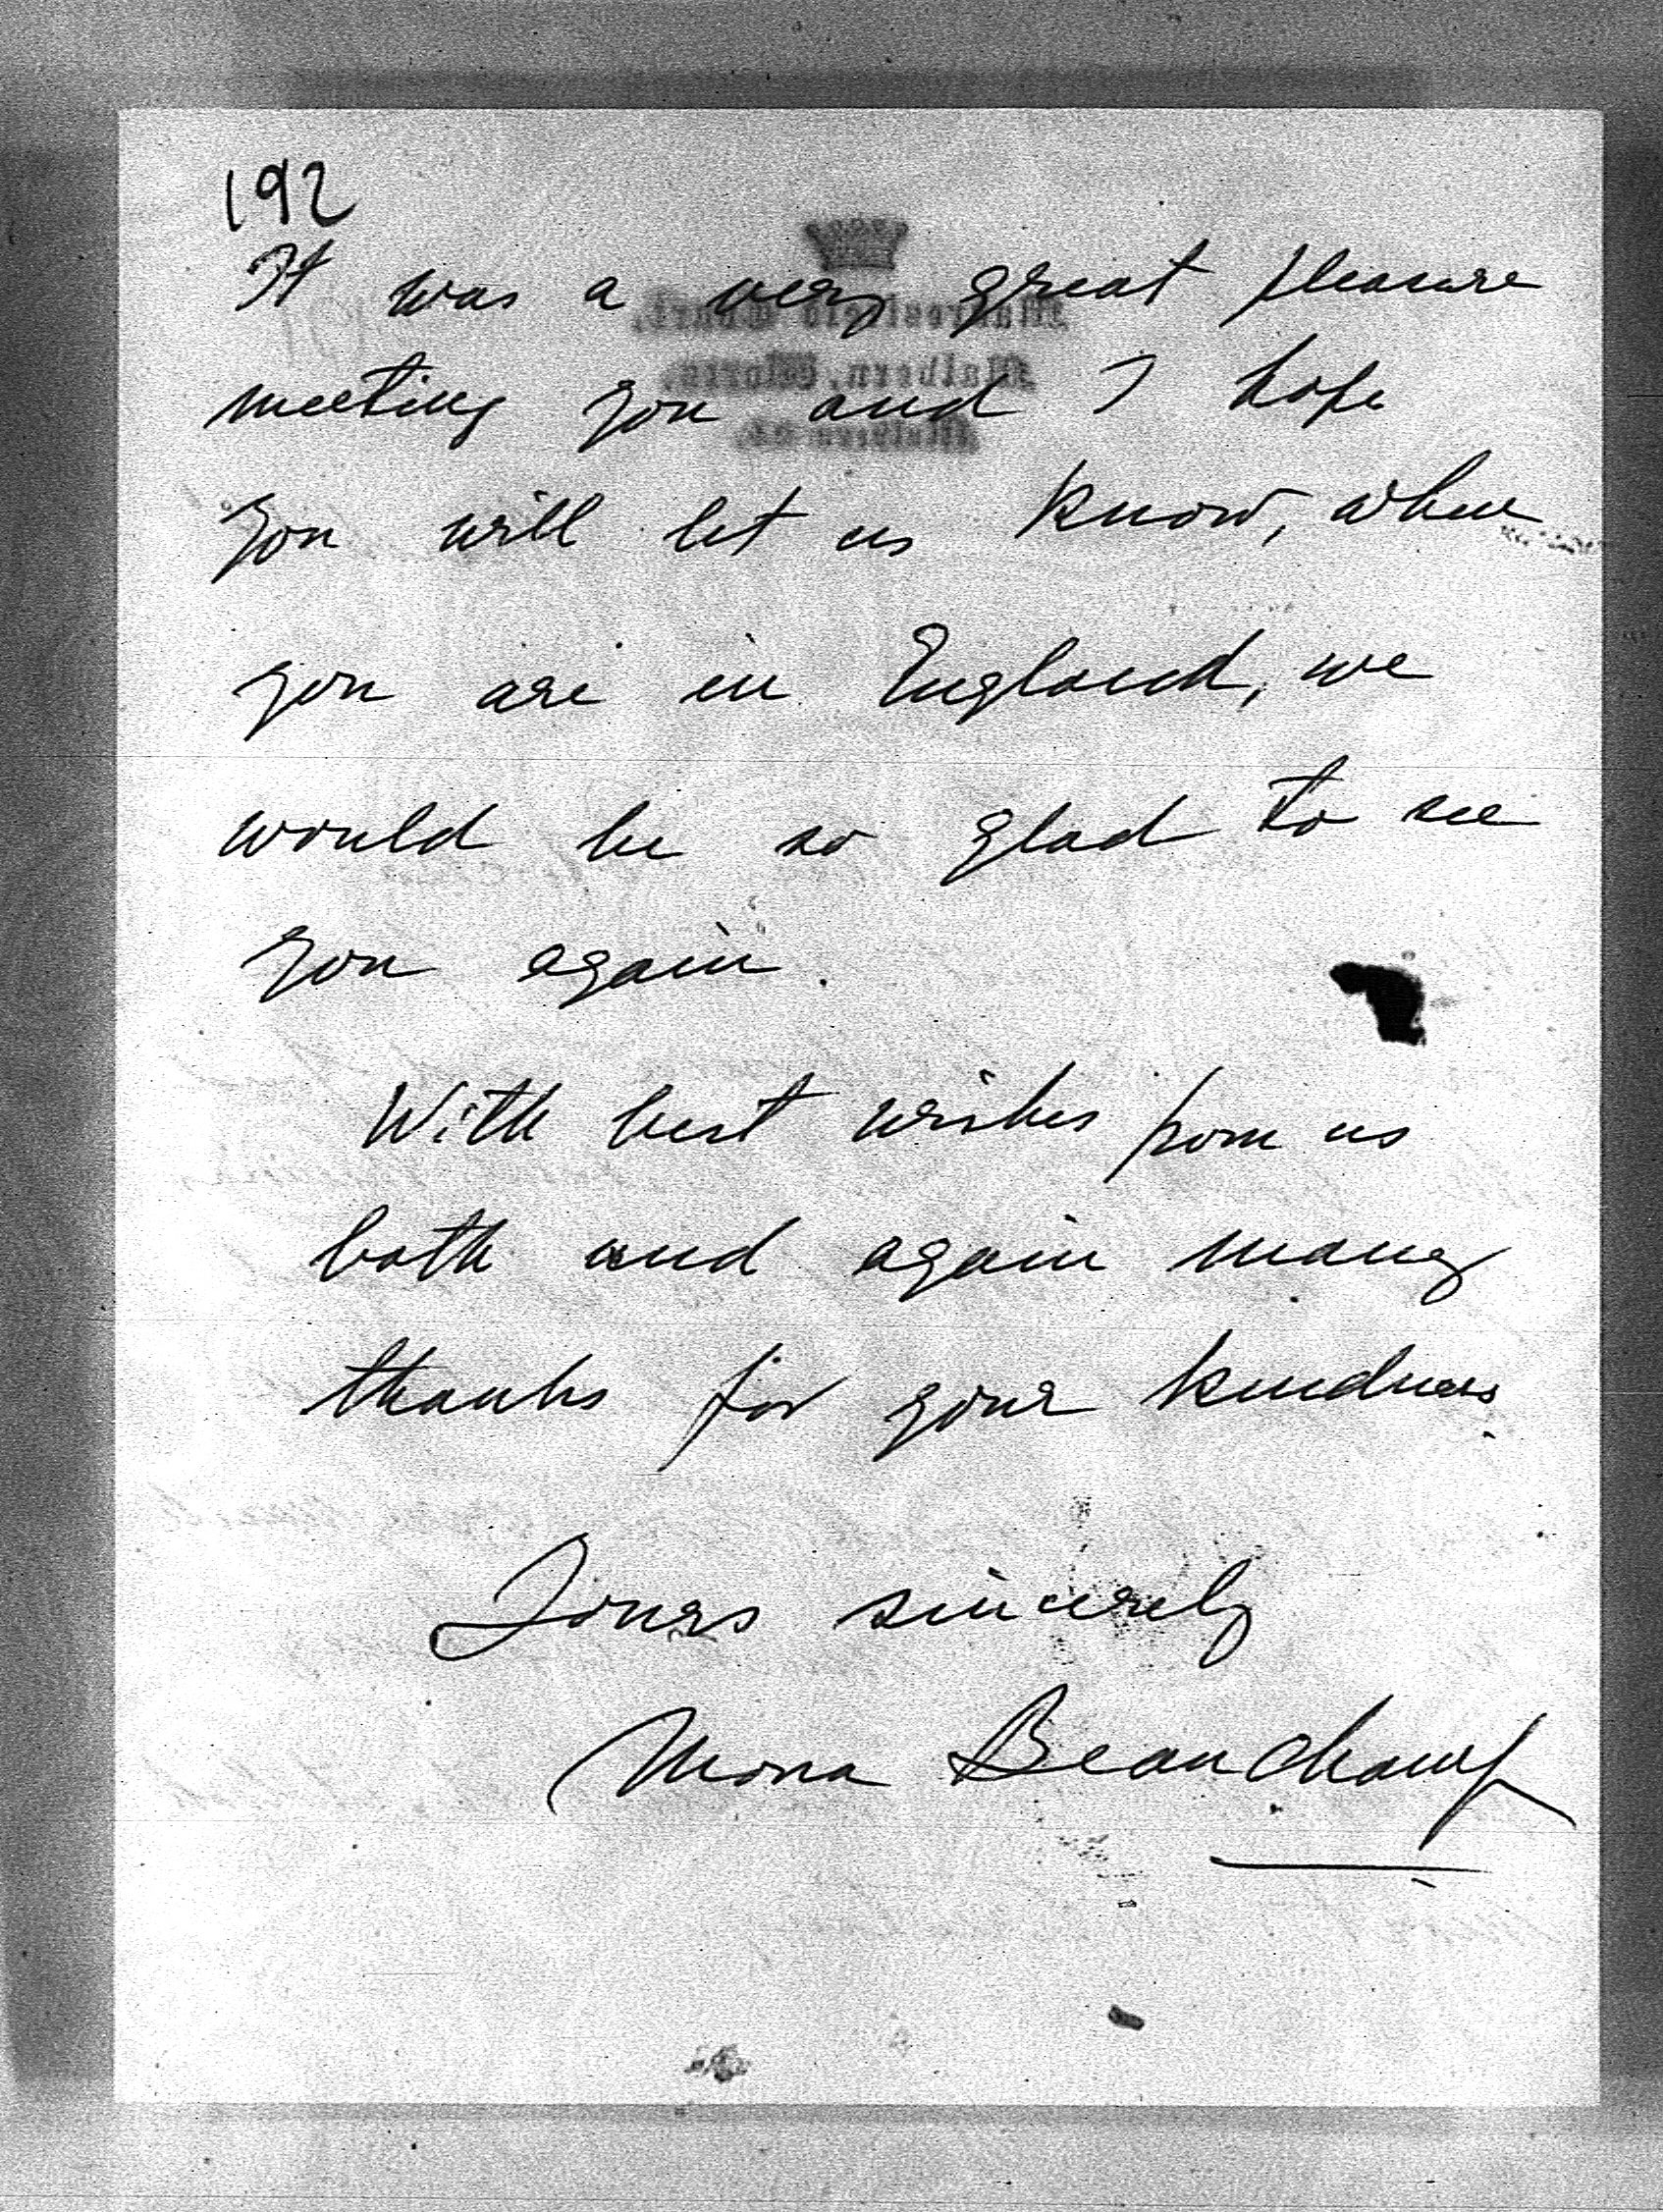 192
It was a very great pleasure
meeting you and I hope
you will let us know, when
you are in England, we
would be so glad to see
you again.
With best wishes from us
both and again many
thanks for your kindness.
Yours sincerely
Mona Beauchamp
Madresfield Court,
Malvern, Worcs.